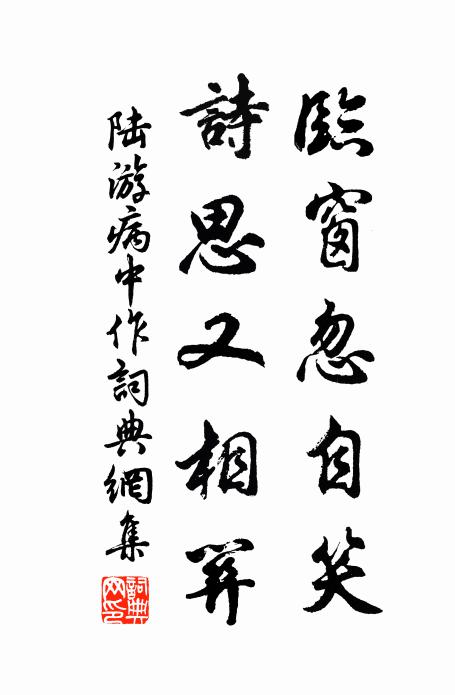 臨窗忽自笑
詩思又相關
陆游病中作詞典網集
詞典
网印